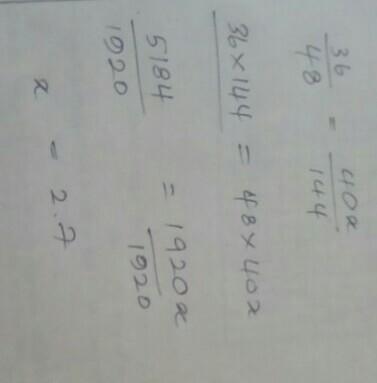 36/48 = 40x/144
36 × 144 = 48 × 40x
5184/1920 = 1920x/1920
x = 2.7